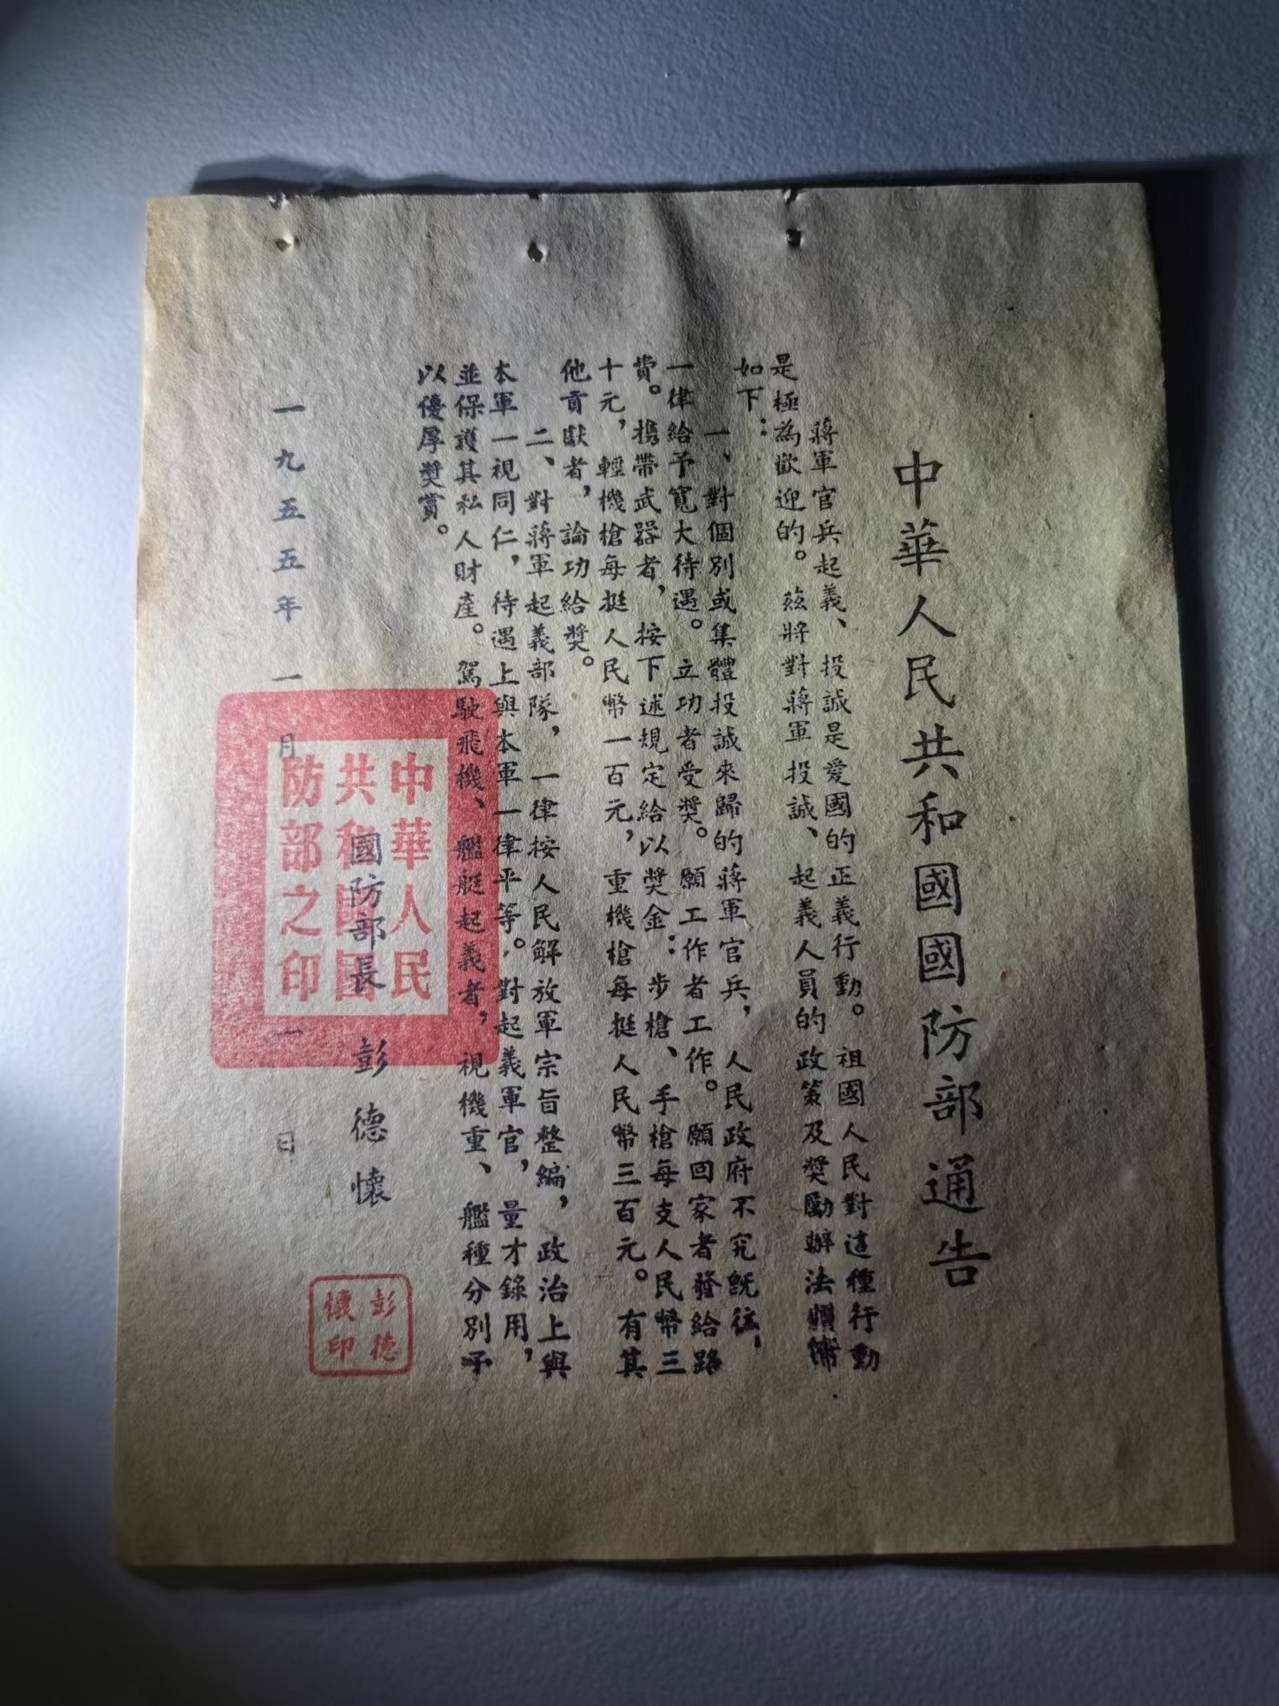 中華人民共和國國防部通告
蔣軍官兵起義、投誠是愛國的正義行動。祖國人民對這種行動
是極為歡迎的。茲將對蔣軍投誠、起義人員的政策及獎勵辦法頒佈
如下：
一、對個別或集體投誠來歸的蔣軍官兵，人民政府不究既往，
一律給予寬大待遇。立功者受獎。願工作者工作。願回家者發給路
費。攜帶武器者，按下述規定給以獎金：步槍、手槍每支人民幣三
十元，輕機槍每挺人民幣一百元，重機槍每挺人民幣三百元。有其
他貢獻者，論功給獎。
二、對蔣軍起義部隊，一律按人民解放軍宗旨整編，政治上與
本軍一視同仁，待遇上與本軍一律平等。對起義軍官，量才錄用，
並保護其私人財產。駕駛飛機、艦艇起義者，視機重、艦種分別予
以優厚獎賞。
國防部長 彭德懷
一九五五年一月 一日
中華人民
共和國國
防部之印
彭德
懷印